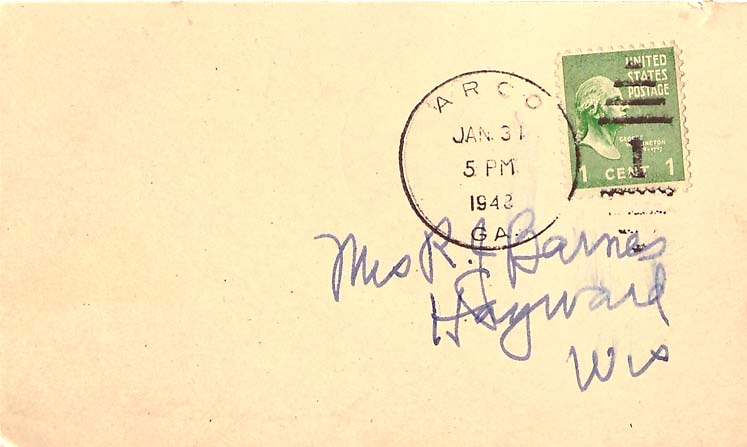 UNITED
STATES
POSTAGE
1 CENT 1
ARCO
JAN. 31
5 PM
1943
GA.
1
Mrs R. J Barnes
Hayward
Wis